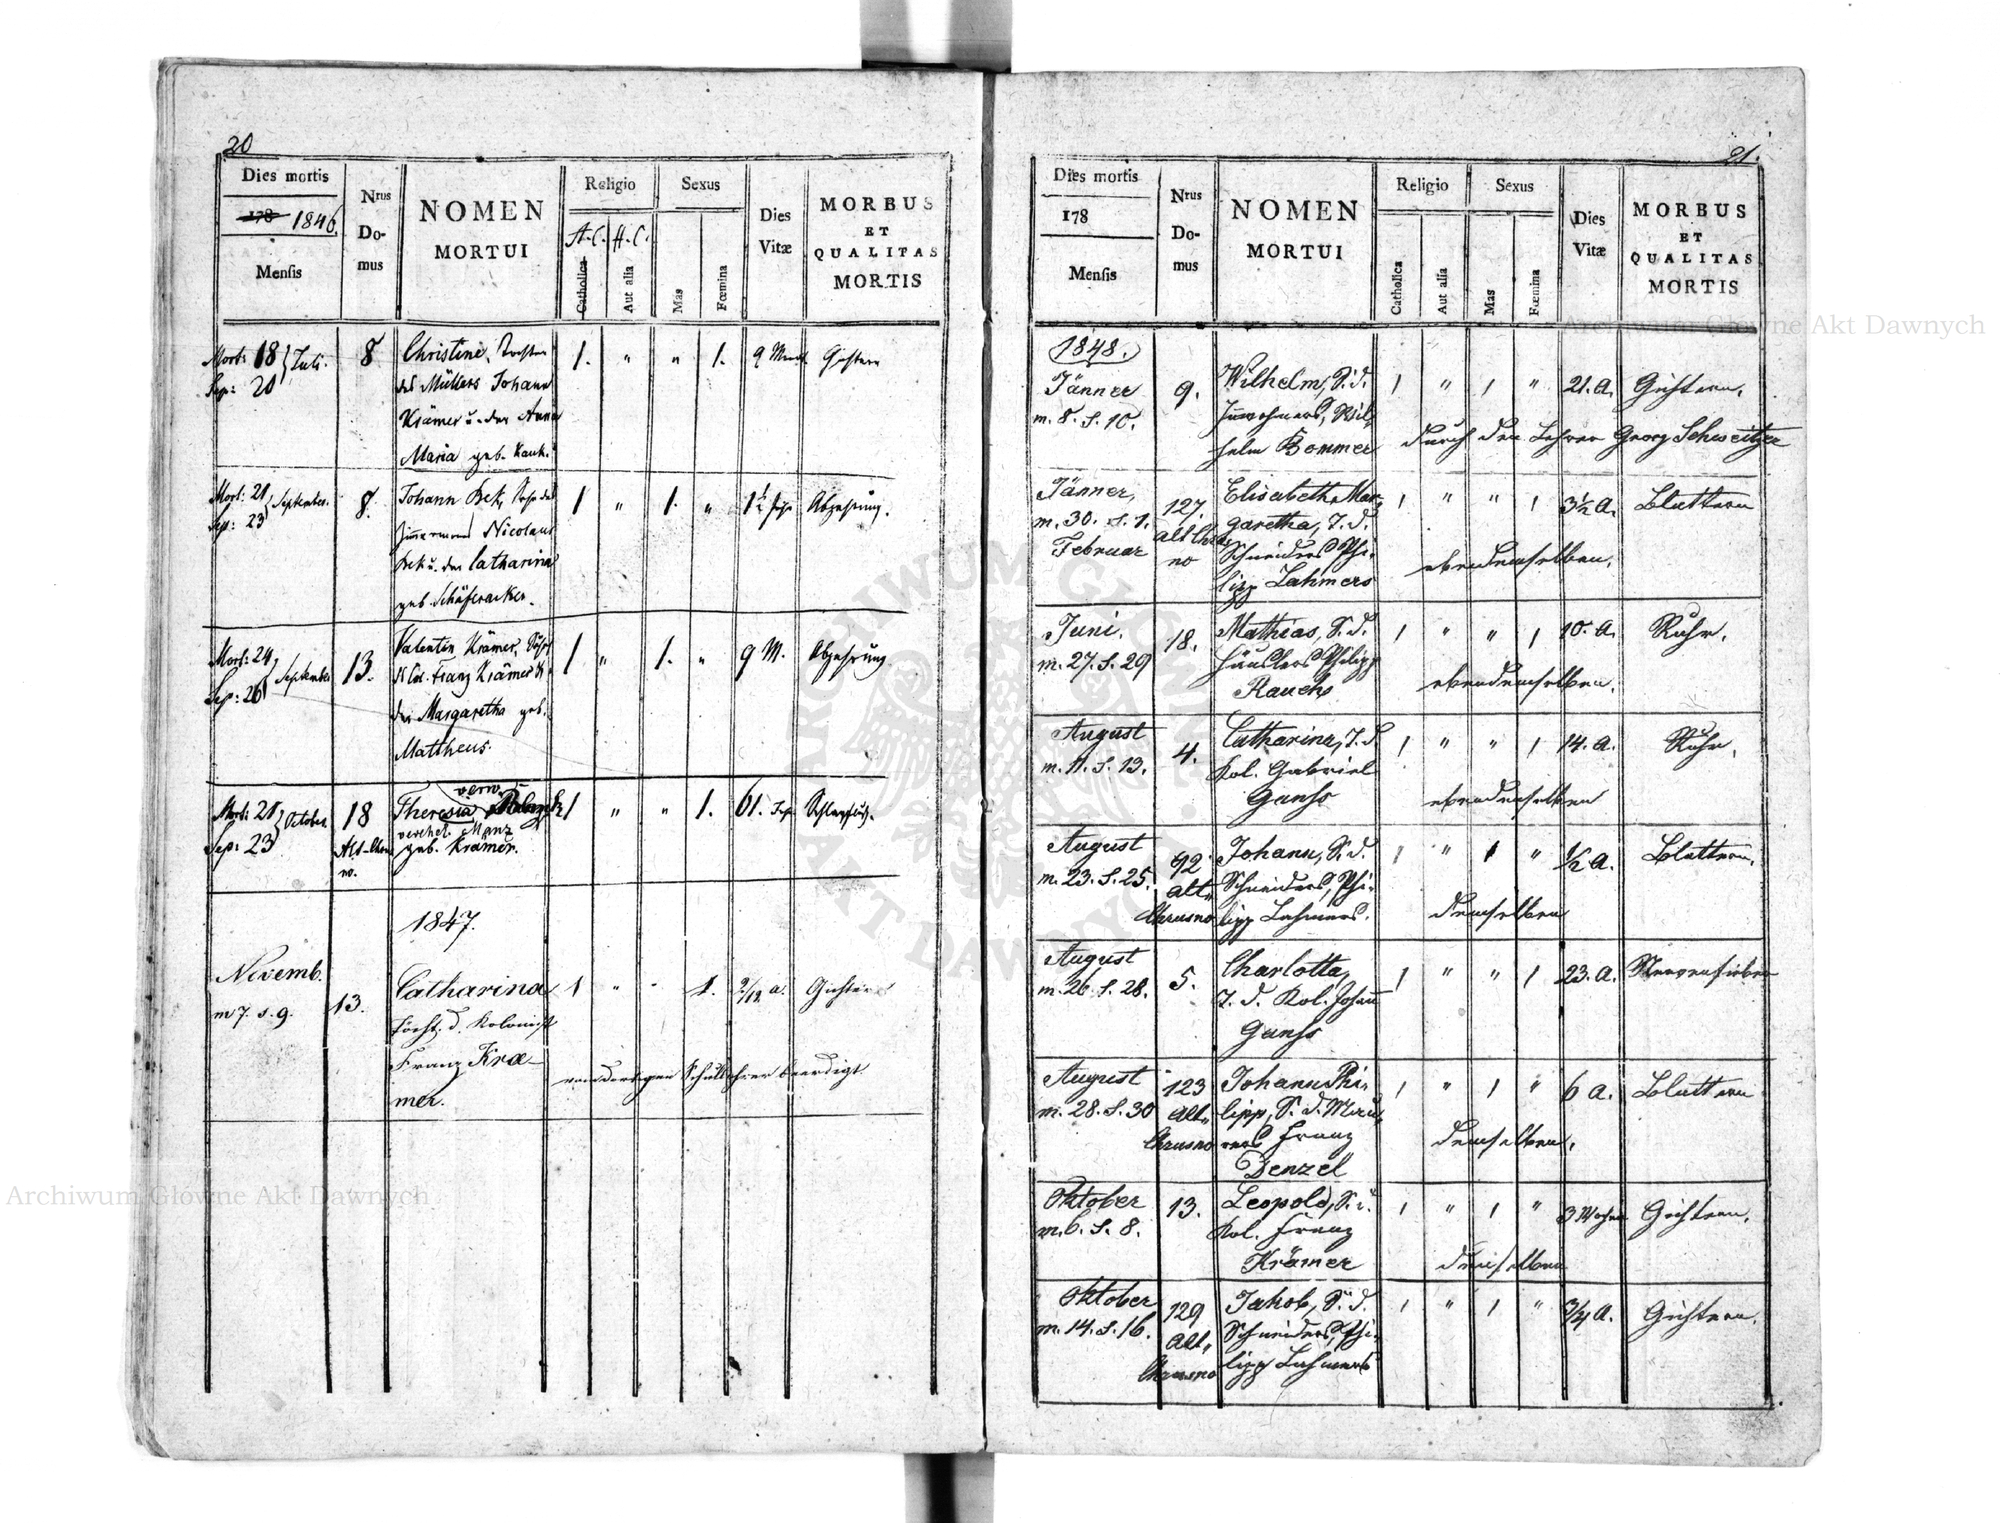 20
Dies mortis
178 1846.
Mensis
Nrus
Do-
mus
NOMEN
MORTUI
Religio
A.C. H.C.
Catholica
Aut alia
Sexus
Mas
Fœmina
Dies
Vitæ
MORBUS
ET
QUALITAS
MORTIS
Mort: 18
Sep: 20
Juli.
8
Christine, Tochter
des Müllers Johann
Krämer u. der Anna
Maria geb.
1. " " 1.
9 Mont.
Gichtern
Mort: 21
Sep: 23
September.
8.
Johann Bek, Sohn des
Zimmermanns Nicolaus
Bek u. der Catharina
geb. Schäferacker.
1 " 1. "
1½ Jahr
Abzehrung.
Mort: 24
Sep: 26
September
13.
Valentin Krämer, Sohn
d. Col. Franz Krämer u.
der Margaretha geb.
Mattheus.
1 " 1. "
9 M.
Abzehrung
Mort: 21
Sep: 23
October
18
Alt-Chrus
no.
verw.
Theresia
verehel. Manz
geb. Krämer.
1 " " 1.
61. Jahr
Schlagfluß.
1847.
Novemb.
m 7. s. 9.
13.
Catharina
Tocht. d. Kolonist
Franz Krae-
mer.
1 " " 1.
a.
Gichter
vom dortigen Schullehrer beerdigt.
21.
Dies mortis
178
Mensis
Nrus
Do-
mus
NOMEN
MORTUI
Religio
Catholica
Aut alia
Sexus
Mas
Fœmina
Dies
Vitæ
MORBUS
ET
QUALITAS
MORTIS
1848.
Jänner
m. 8. s. 10.
9.
Wilhelm, S. d.
Innwohners, Wil-
helm Bommer
1 " 1 "
21. a.
Gichtern.
durch den Lehrer Georg Schweitzer
Jänner,
m. 30. s. 1.
Februar
127.
Alt Chrus
no
Elisabeth Mar-
garetha, T. d.
Schneiders Phi-
lipp Lahmers
1 " " 1
3½ a.
Blattern
ebendemselben.
Juni.
m. 27. s. 29
18.
Mathias, S. d.
Häuslers Philipp
Rauchs
1 " " 1
10. a.
Ruhr.
ebendemselben.
August
m. 11. s. 13.
4.
Catharina, T. d.
Kol. Gabriel
Ganso
1 " " 1
14. a.
Ruhr.
ebendemselben
August
m. 23. s. 25.
Alt-
Chrusno
Johann, S. d.
Schneiders, Phi-
lipp Lahmers.
1 " 1 "
½ a.
Blattern.
demselben
August
m. 26. s. 28.
5.
Charlotta,
T. d. Kol. Johann
Ganso
1 " " 1
23. a.
Nervenfieber
August
m. 28. s. 30
123
Alt-
Chrusno
Johann Phi-
lipp, S. d. Mau-
rers Franz
Denzel
1 " 1 "
6 a.
Blattern
demselben.
Oktober
m. 6. s. 8.
13.
Leopold, S. d.
Kol. Franz
Krämer
1 " 1 "
3 Wochen
Gichtern.
demselben
Oktober
m. 14. s. 16.
129
Alt-
Chrusno
Jakob, S. d.
Schneiders, Phi-
lipp Lahmers
1 " 1 "
¾ a.
Gichtern.
Archiwum Główne Akt Dawnych
Archiwum Główne Akt Dawnych
ARCHIWUM GŁÓWNE AKT DAWNYCH